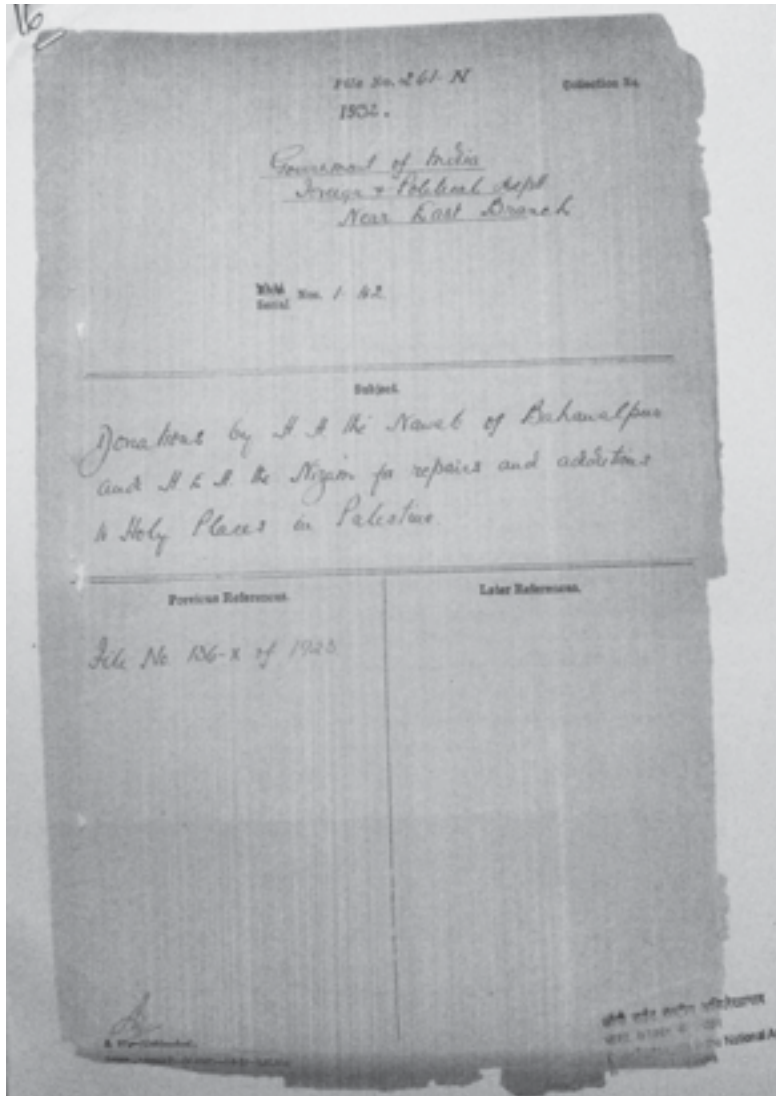 16
File No. 261-N
Collection No.
1932.
Government of India
Foreign & Political Dept
Near East Branch
Serial Nos. 1-42
Subject.
Donations by H H the Nawab of Bahawalpur
and H E H. the Nizam for repairs and additions
to Holy Places in Palestine
Previous References.
Later References.
File No 136-X of 1923
the National A